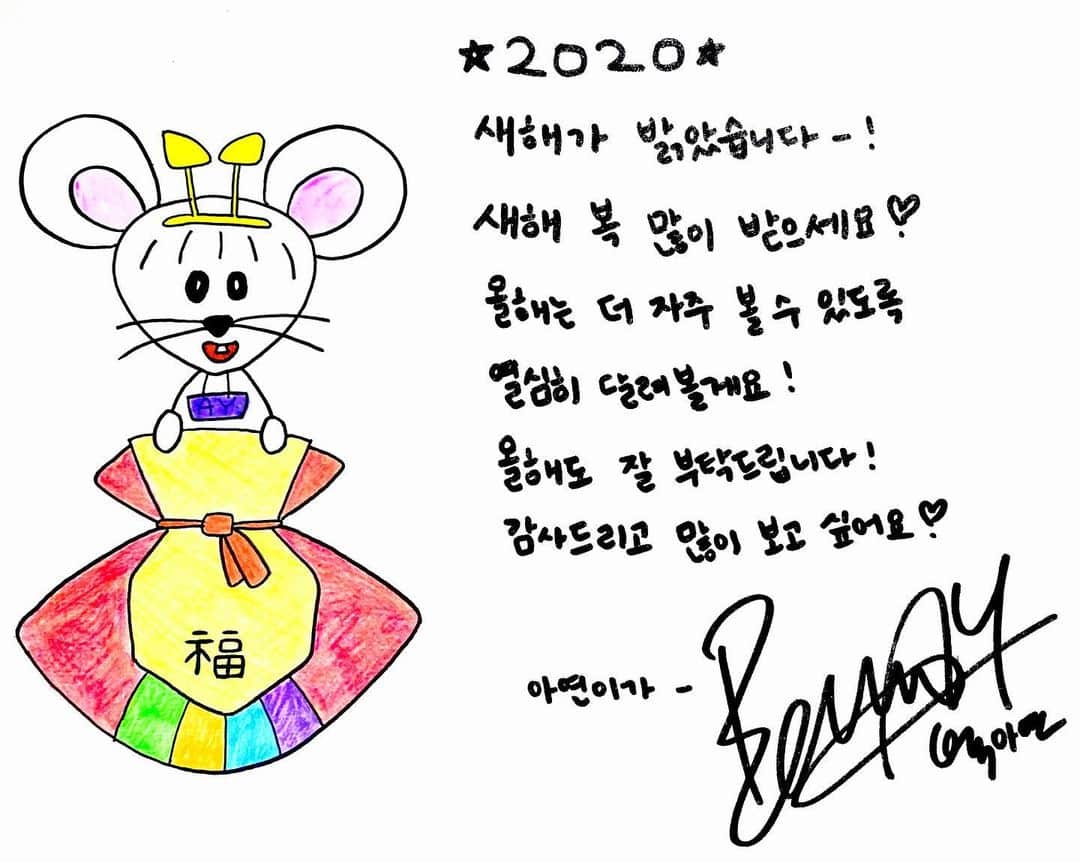 ★2020★
새해가 밝았습니다-!
새해 복 많이 받으세요♡
올해는 더 자주 볼 수 있도록
열심히 달려볼게요!
올해도 잘 부탁드립니다!
감사드리고 많이 보고 싶어요♡
AY
福
아연이가 -